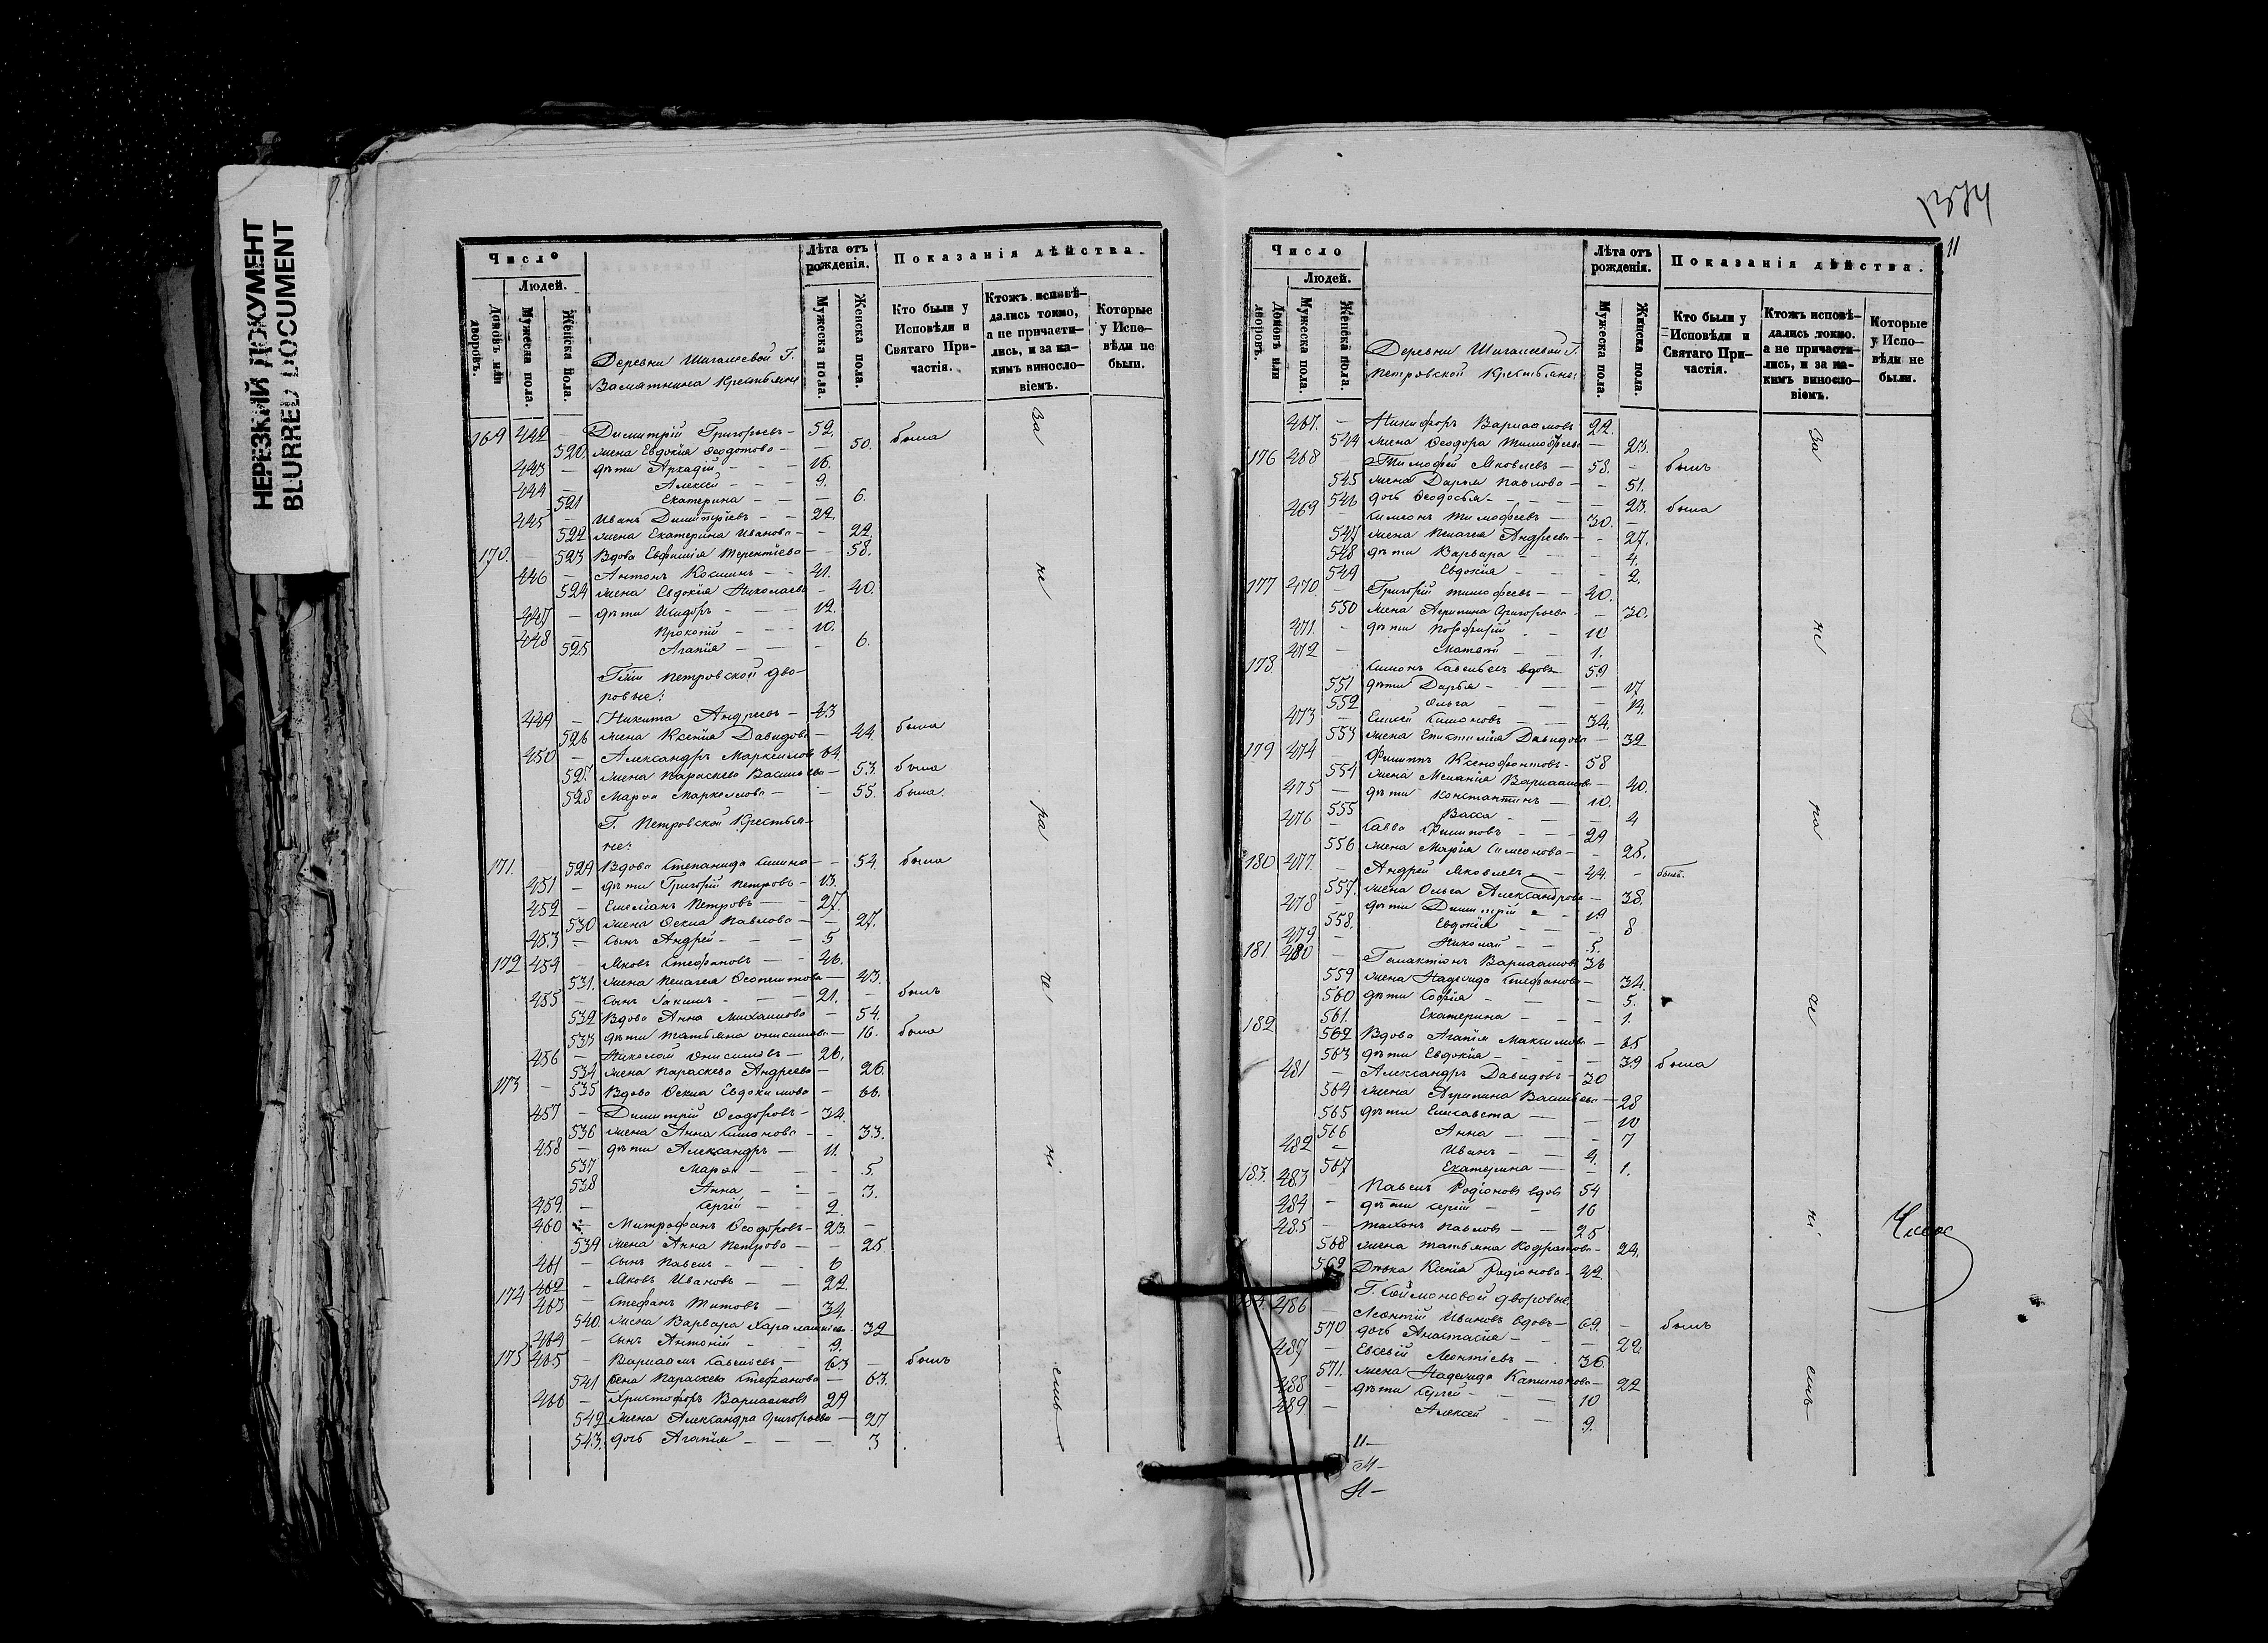 НЕРЕЗКИЙ ДОКУМЕНТ
BLURRED DOCUMENT
Число
Людей.
Домовъ или дворовъ.
Мужеска пола.
Женска пола.
Деревни Шигалеевой Г.
Замятнина Крестьяне
Лѣта отъ рожденія.
Мужеска пола.
Женска пола.
Показанія дѣйства.
Кто были у Исповѣди и Святаго Причастія.
Ктожъ исповѣдались токмо, а не причастились, и за какимъ винословіемъ.
Которые у Исповѣди не были.
169 442 — Димитрій Григорьевъ — 52.
520. жена Евдокія Ѳеодотова — 50. была
443 — дѣти Аркадій — 16.
444 — Алексѣй — 9.
521 Екатерина — 6.
445 — Иванъ Димитріевъ — 22.
522 жена Екатерина Иванова — 22.
170. — 523 Вдова Евфимія Терентіева — 58.
446 — Антонъ Косминъ — 41.
524 жена Евдокія Николаева — 40.
447 — дѣти Исидоръ — 12.
448 — Прокопій — 10.
525 Агапія — 6.
Г-жи Петровской дворовые:
449 — Никита Андреевъ — 43
526 жена Ксенія Давидова — 44. была
450 — Александръ Маркеловъ 64.
527. жена Параскева Васильева — 53. была
528 Марѳа Маркеллова — 55. была.
Г. Петровской Крестьяне:
171. 529 Вдова Степанида — 54. была
451 — дѣти Григорій Петровъ — 13.
452 — Емеліанъ Петровъ — 27.
530 жена Ѳекла Павлова — 27.
453 — сынъ Андрей — 5
172 454 — Яковъ Стефановъ — 46.
531. жена Пелагея — 43.
455 — сынъ Іакимъ — 21. — былъ
532 Вдова Анна Михаилова — 54.
533 дѣти Татьяна Онисимова — 16. была
456 — Николай Онисимовъ — 26.
534 жена Параскева Андреева — 26.
173 — 535 Вдова Ѳекла Евдокимова — 66.
457 — Димитрій Ѳеодоровъ — 34.
536 жена Анна Симонова — 33.
458 — дѣти Александръ — 11.
537 Марѳа — 5.
538 Анна — 3.
459. — Сергій — 2.
460 — Митрофанъ Ѳеодоровъ — 23. —
539 жена Анна Петрова — 25
461 — сынъ Павелъ — 6
462 — Яковъ Ивановъ — 22.
174 463 — Стефанъ Титовъ — 34.
540. жена Варвара — 32
464 — сынъ Антоній — 9.
175 465 — Варлаамъ Савельевъ — 63 — былъ
541 жена Параскева Стефанова — 63.
466 — Христофоръ Варлаамовъ 29
542 жена Александра Григорьева — 27
543. дочь Агапія — 3
За
не
ра
че
ні
емъ
1374
11
Число
Людей.
Домовъ или дворовъ.
Мужеска пола.
Женска пола.
Деревни Шигалеевой Г.
Петровской Крестьяне:
Лѣта отъ рожденія.
Мужеска пола.
Женска пола.
Показанія дѣйства.
Кто были у Исповѣди и Святаго Причастія.
Ктожъ исповѣдались токмо. а не причастились, и за какимъ винословіемъ.
Которые у Исповѣди не были.
467. — Никифоръ Варлаамовъ 22.
544 жена Ѳеодора Тимофеева — 23.
176 468 Тимофей Яковлевъ — 58. — былъ
545 жена Дарья Павлова — 51.
546 дочь Ѳеодосья — 23. была
469 Симеонъ Тимофеевъ — 30. —
547 жена Пелагея Андреева — 27.
548 дѣти Варвара — 4.
549 Евдокія — 2.
177 470. — Григорій Тимофеевъ — 40.
550 жена Агрипина Григорьева — 30.
471. — дѣти Порфирій — 10
472 — — 1.
178. Симонъ Савельевъ вдовъ 59
551 дѣти Дарья — 17
552 Ольга — 14.
473 — Елисей Симоновъ — 34.
553 жена Епистимія Давидова — 32
179 474 — Филиппъ Ксенофонтовъ — 58
554 жена Меланія Варлаамова — 40.
475 — дѣти Константинъ — 10.
555 Васса — 4
476 Савва Филиповъ — 29
556 жена Марія Симеонова — 25.
180 477. — Андрей Яковлевъ — 44. — былъ.
557. жена Ольга Александрова — 38.
478 — дѣти Димитрій — 19
558. Евдокія — 8
479 — Николай — 5.
181 480 — Галактіонъ Варлаамовъ 36
559 жена Надежда Стефанова — 34.
560 дѣти Софія — 5.
561. Екатерина — 1.
182 562 Вдова Агапія Максимова — 65
563 дѣти Евдокія — 39 была
481 — Александръ Давидовъ — 30
564 жена Агрипина Васильева — 28
565 дѣти Елисавета — 10
566 Анна — 7
482 — Иванъ — 4.
567 Екатерина — 1.
183. 483 — Павелъ Родіоновъ вдовъ 54
484 — дѣти Сергій — 16
485 — Тихонъ Павловъ — 25
568 жена Татьяна — 24.
569 Дѣвка Ксенія Родіонова — 42.
Г. Соймоновой дворовые.
184. 486 — Леонтій Ивановъ вдовъ — 69. — былъ
570 дочь Анастасія — 22
487 — Евсевій Леонтіевъ — 36.
571. жена Надежда Капитонова — 22
488 — дѣти Сергей — 10
489 — Алексѣй — 9.
За
не
ра
че
ні
емъ